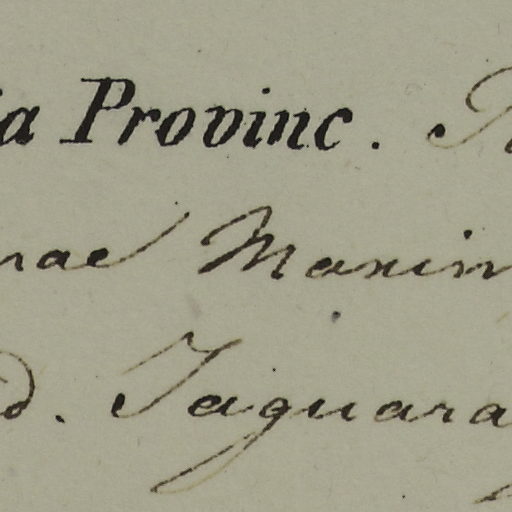 ia Provinc.
rae Maxim
d. Jaguara